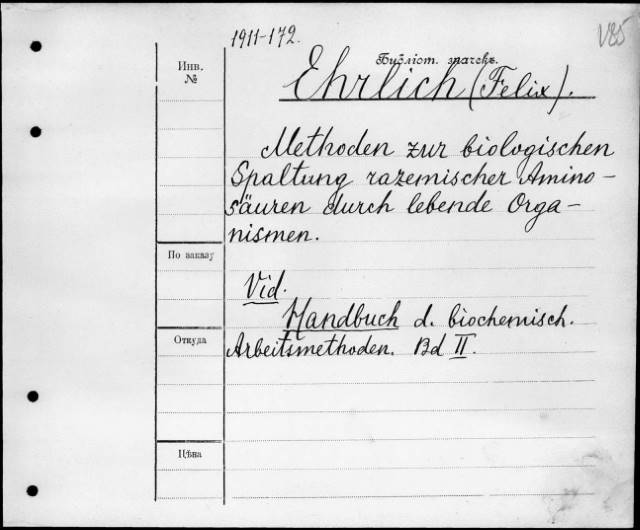 1911-172.
V85
Инв.
№
Библіот. значекъ.
Ehrlich (Felix).
Methoden zur biologischen
Spaltung razemischer Amino-
säuren durch lebende Orga-
nismen.
По заказу
Vid.
Handbuch d. biochemisch.
Откуда
Arbeitsmethoden. Bd II.
Цѣна